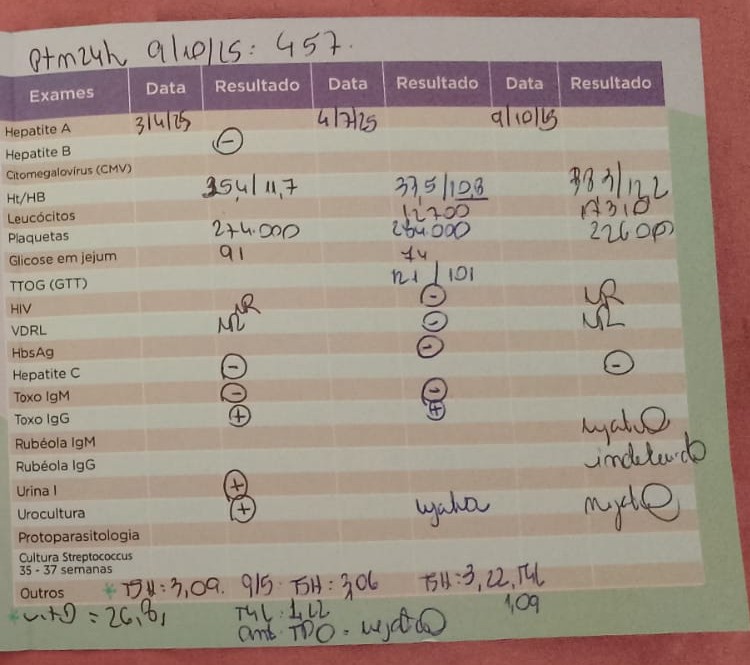 Ptn24h 9/10/25: 457.
Exames Data Resultado Data Resultado Data Resultado
3/4/25 4/7/25 9/10/25
Hepatite A
Hepatite B (-)
Citomegalovírus (CMV)
Ht/HB 35,4/11,7 37,5/10,8 38 3/12,2
Leucócitos 12700 17310
Plaquetas 274.000 284.000 226000
Glicose em jejum 91 74
TTOG (GTT) 121/101
HIV NR (-) NR
VDRL NR (-) NR
HbsAg (-)
Hepatite C (-) (-)
Toxo IgM (-) (-)
Toxo IgG (+) (+)
Rubéola IgM
Rubéola IgG
Urina I (+)
Urocultura (+)
Protoparasitologia
Cultura Streptococcus
35 - 37 semanas
Outros * TSH: 3,09. 9/5. TSH: 3,06 TSH: 3,22, T4L
* vitD = 26,8, T4L: 1,22 1,09
TPO